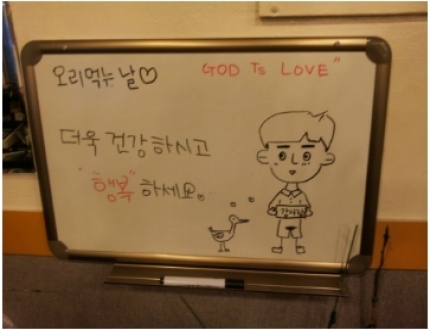 오리먹는 날♡
GOD Is LOVE"
더욱 건강하시고
"행복" 하세요。